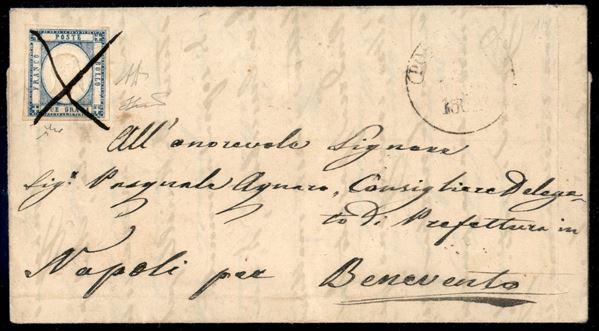 POSTE
FRANCO
BOLLO
DUE GRANA
All'onorevole Signore
Sig.r Pasquale Agnaro, Consigliere Delega-
to di Prefettura in
Napoli per Benevento